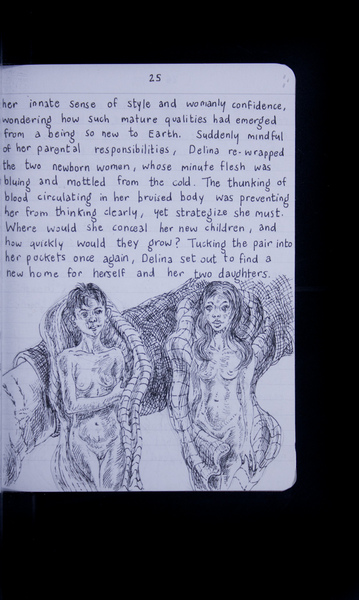 25
her innate sense of style and womanly confidence,
wondering how such mature qualities had emerged
from a being so new to Earth. Suddenly mindful
of her parental responsibilities, Delina re-wrapped
the two newborn women, whose minute flesh was
bluing and mottled from the cold. The thunking of
blood circulating in her bruised body was preventing
her from thinking clearly, yet strategize she must.
Where would she conceal her new children, and
how quickly would they grow? Tucking the pair into
her pockets once again, Delina set out to find a
new home for herself and her two daughters.